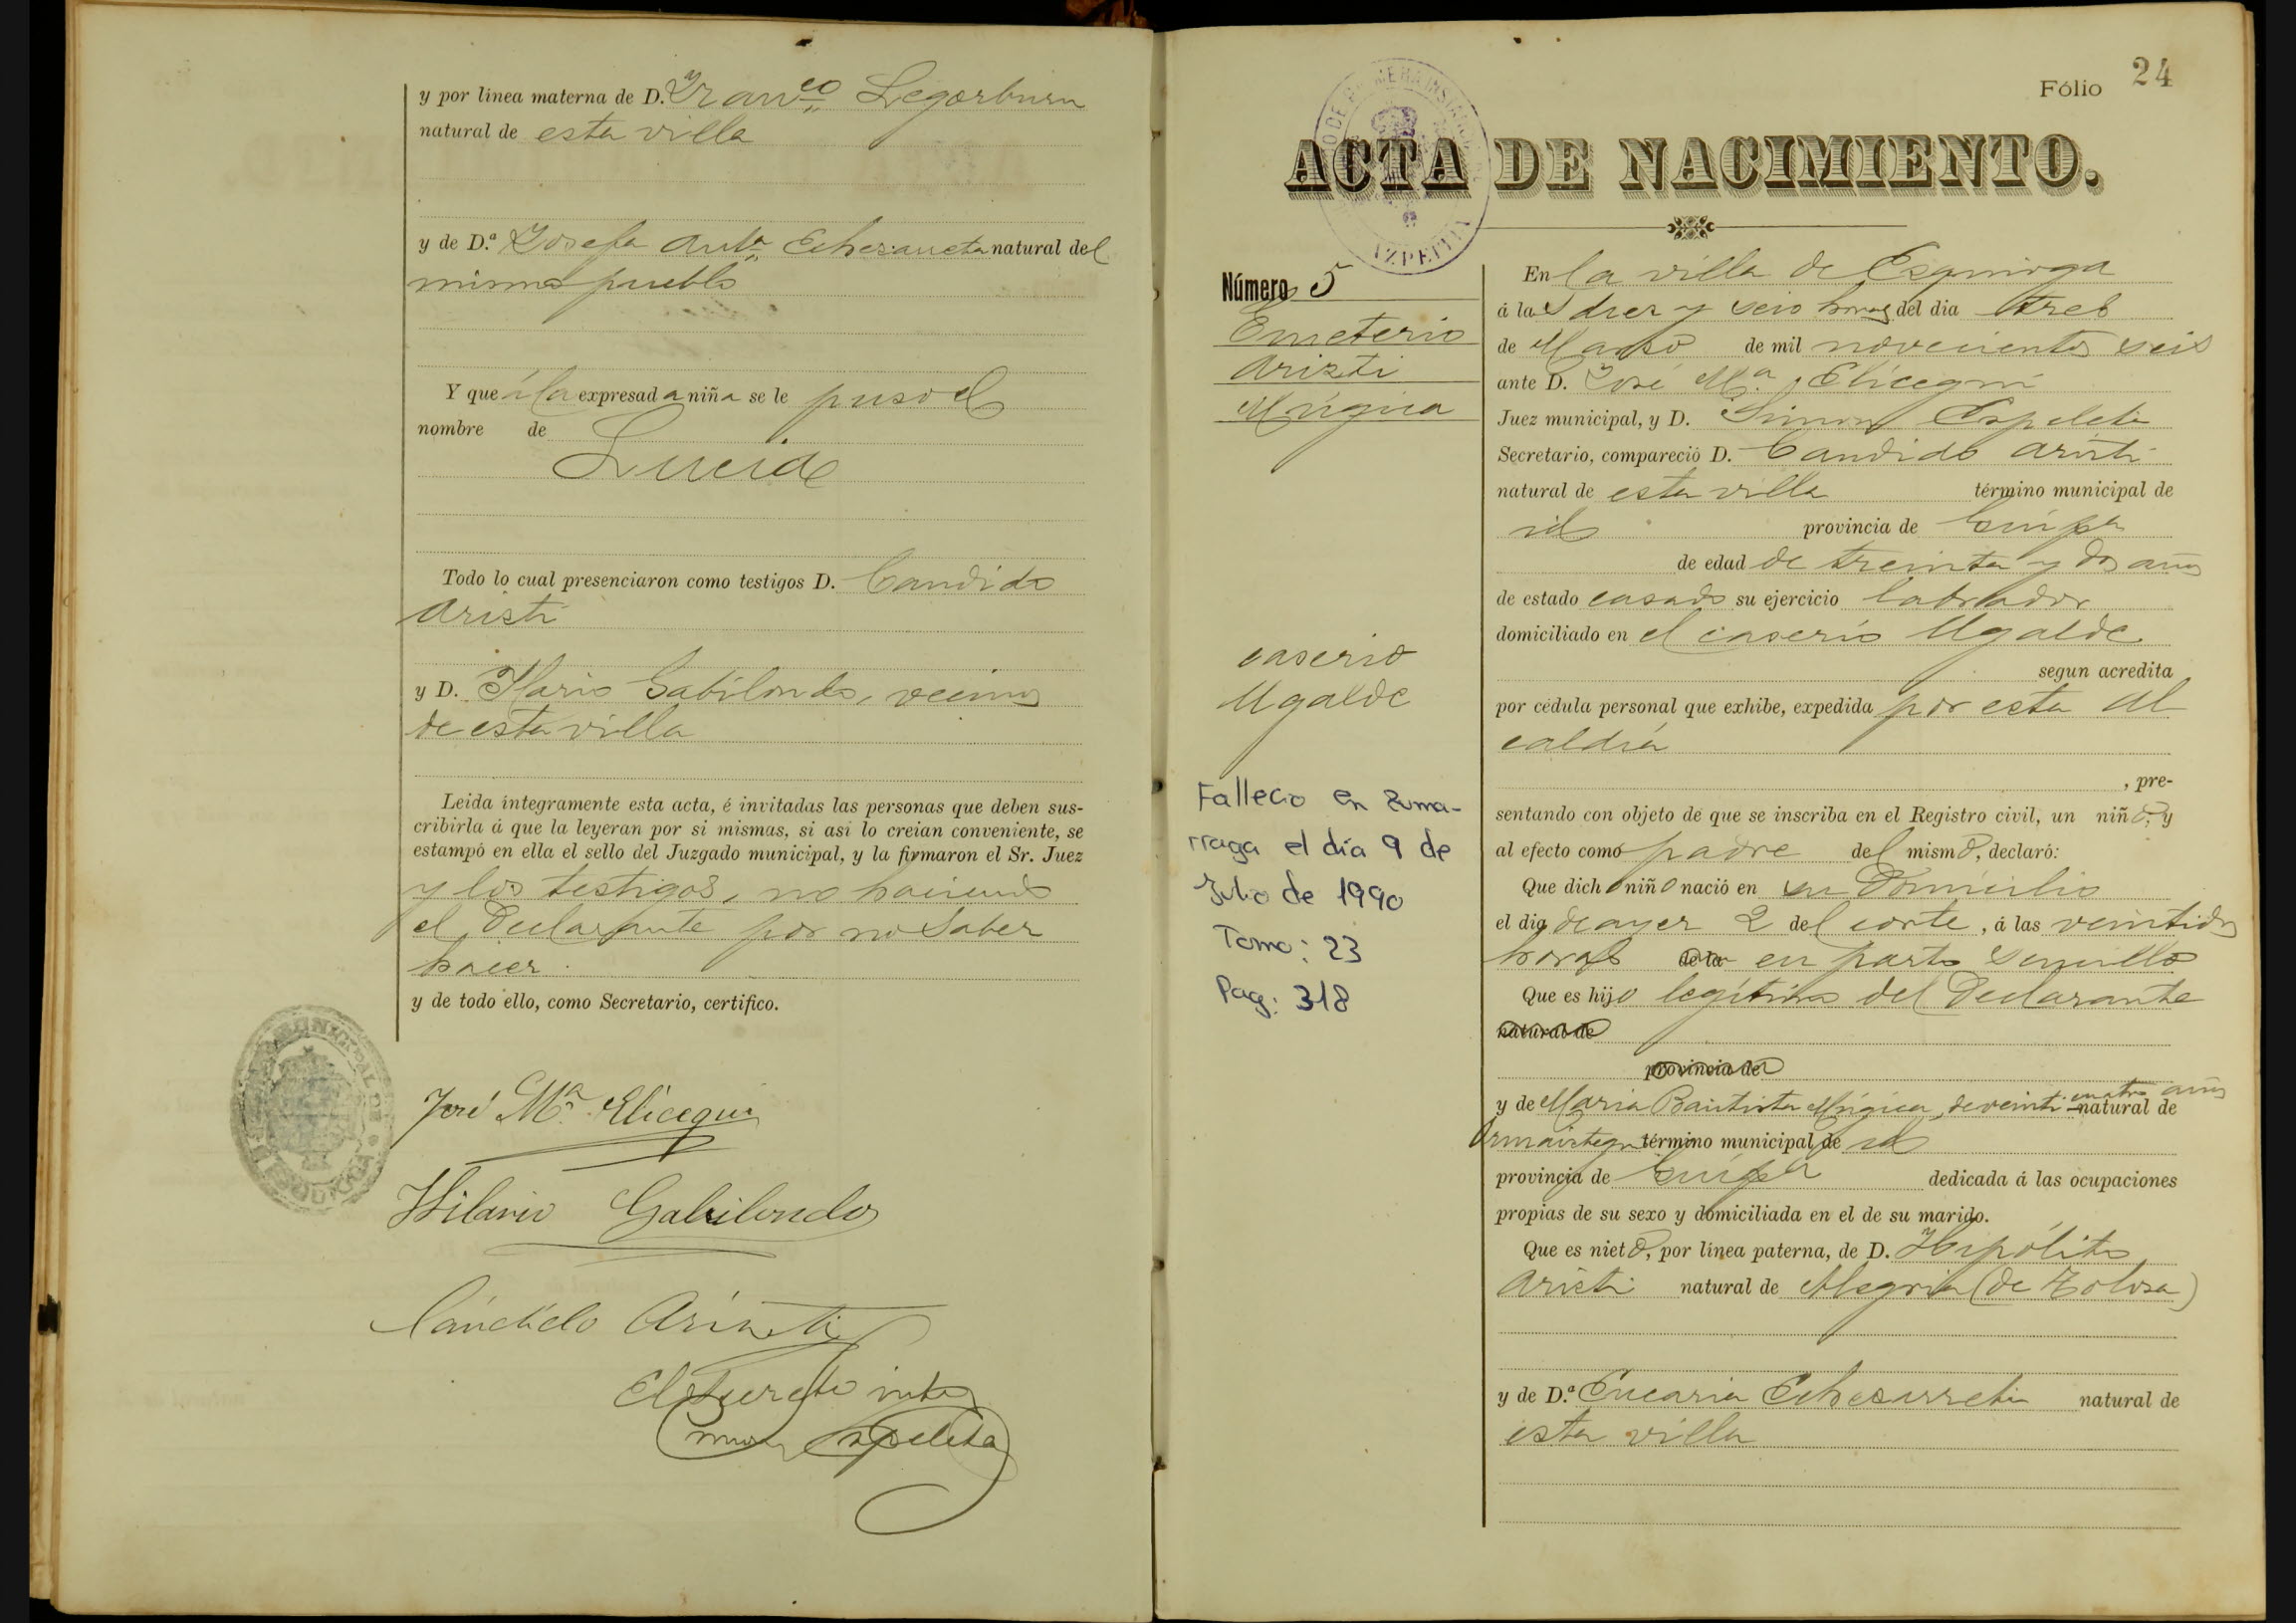 y por linea materna de D. Franco Legorburu
natural de esta villa
y de D.ª Josefa Anta Echezarreta natural del
mismo pueblo
Y que á la expresada niña se le puso el
nombre de
Lucia
Todo lo cual presenciaron como testigos D. Candido
Aristi
y D. Ilario Gabilondo, vecinos
de esta villa
Leida íntegramente esta acta, é invitadas las personas que deben sus-
cribirla á que la leyeran por si mismas, si asi lo creian conveniente, se
estampó en ella el sello del Juzgado municipal, y la firmaron el Sr. Juez
y los testigos, no haciendo
el Declarante por no saber
hacer.
y de todo ello, como Secretario, certifico.
José Mª Elicegui
Hilario Gabilondo
Cándido Aristi
El Secreto into
Simon Espeleta
Fólio 24
ACTA DE NACIMIENTO.
AZPEITIA
Número 5
Emeterio
Arizti
Múgica
caserio
Ugalde
Fallecio en Zuma-
rraga el día 9 de
Julio de 1990
Tomo: 23
Pag: 318
En la villa de Esquioga
á las diez y seis horas del dia tres
de Marzo de mil novecientos seis
ante D. José Mª Elicegui
Juez municipal, y D. Simon Espeleta
Secretario, compareció D. Candido Aristi
natural de esta villa término municipal de
id provincia de Guipª
de edad de treinta y dos años
de estado casado su ejercicio labrador
domiciliado en el caserio Ugalde
segun acredita
por cédula personal que exhibe, expedida por esta Al
caldía
, pre-
sentando con objeto de que se inscriba en el Registro civil, un niño, y
al efecto como padre del mismo, declaró:
Que dicho niño nació en su Domicilio
el dia de ayer 2 del corte, á las veintidos
horas de la en parto sencillo
Que es hijo legítimo del Declarante
natural de
provincia de
y de Maria Bautista Múgica, de veinti cuatro años natural de
Ormaiztegui término municipal de id
provincia de Guipª dedicada á las ocupaciones
propias de su sexo y domiciliada en el de su marido.
Que es nieto, por línea paterna, de D. Hipólito
Aristi natural de Alegria (de Tolosa)
y de D.ª Eucaria Echezarreta natural de
esta villa